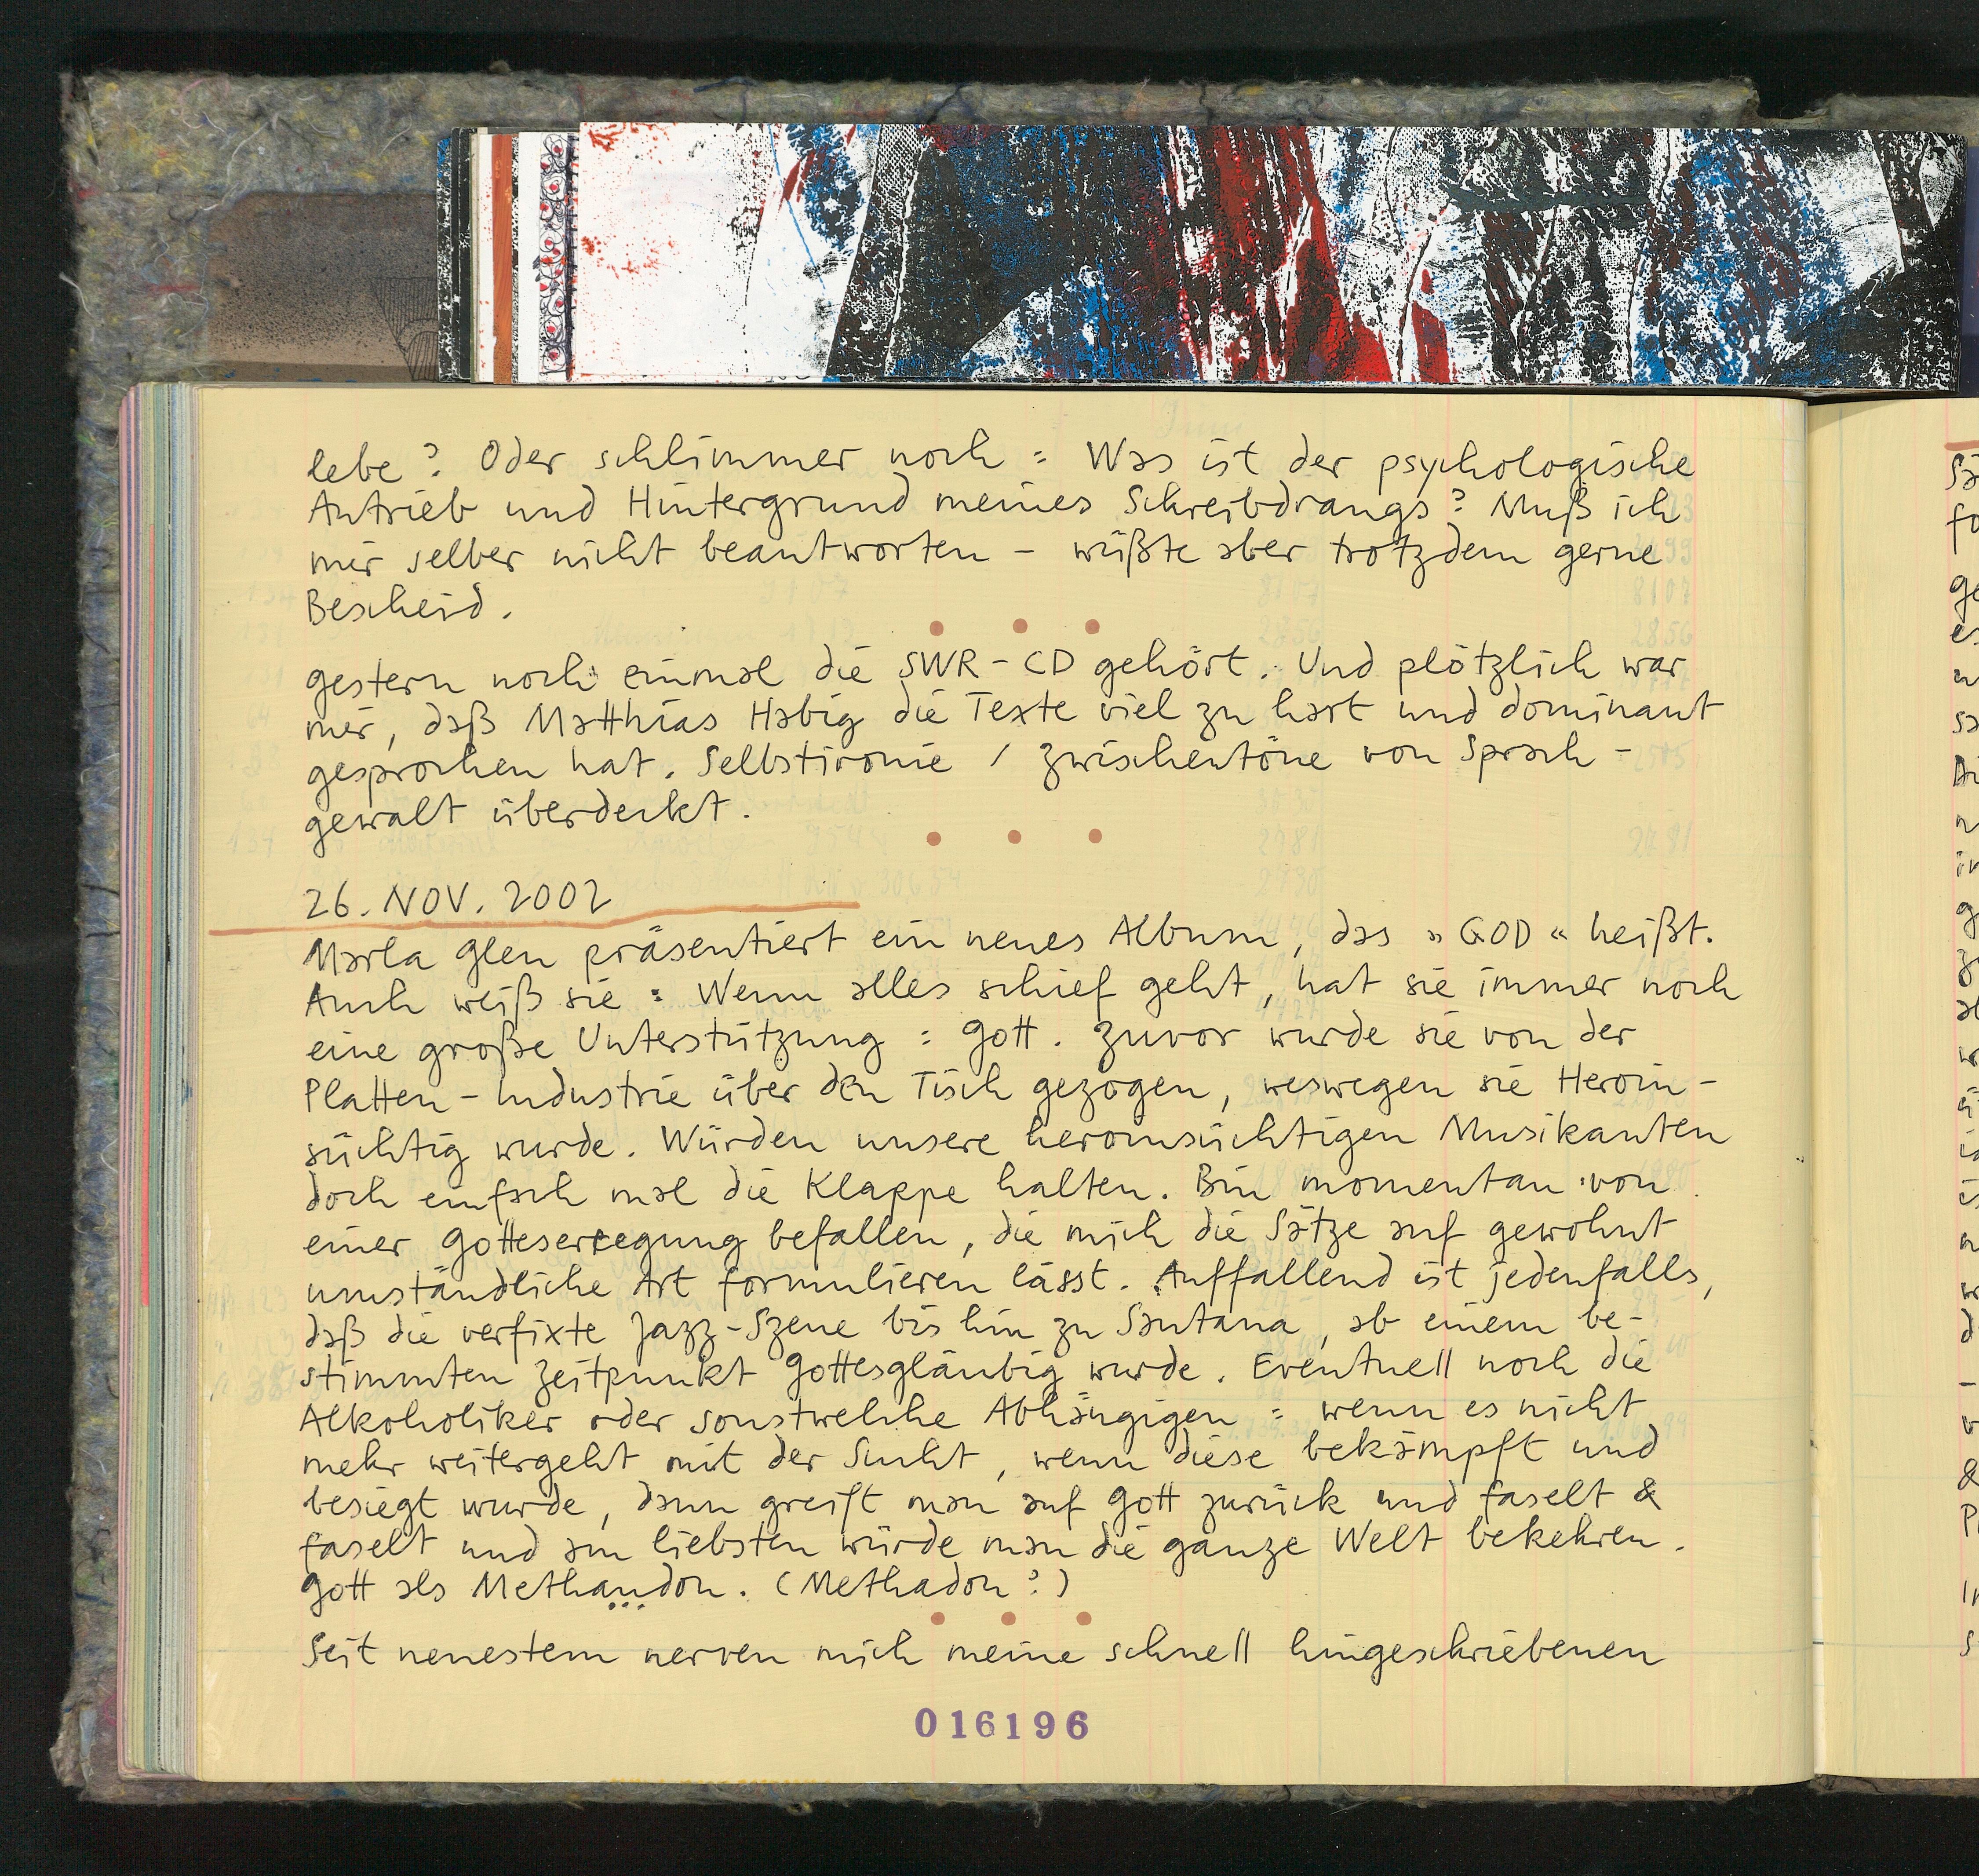 lebe? Oder schlimmer noch: Was ist der psychologische
Antrieb und Hintergrund meines Schreibdrangs? Muß ich
mir selber nicht beantworten – wüßte aber trotzdem gerne
Bescheid.
gestern noch einmal die SWR-CD gehört. Und plötzlich war
mir, daß Matthias Habig die Texte viel zu hart und dominant
gesprochen hat. Selbstironie / Zwischentöne von Sprach-
gewalt überdeckt.
26. NOV. 2002
Marla Glen präsentiert ein neues Album, das »GOD« heißt.
Auch weiß sie: Wenn alles schief geht, hat sie immer noch
eine große Unterstützung: Gott. Zuvor wurde sie von der
Platten-Industrie über den Tisch gezogen, weswegen sie Heroin-
süchtig wurde. Würden unsere heroinsüchtigen Musikanten
doch einfach mal die Klappe halten. Bin momentan von
einer Gotteserregung befallen, die mich die Sätze auf gewohnt
umständliche Art formulieren lässt. Auffallend ist jedenfalls,
daß die verfixte Jazz-Szene bis hin zu Santana, ab einem be-
stimmten Zeitpunkt Gottesgläubig wurde. Eventuell noch die
Alkoholiker oder sonstwelche Abhängigen: wenn es nicht
mehr weitergeht mit der Sucht, wenn diese bekämpft und
besiegt wurde, dann greift man auf Gott zurück und faselt &
faselt und am liebsten würde man die ganze Welt bekehren.
Gott als Methandon. (Methadon?)
Seit neuestem nerven mich meine schnell hingeschriebenen
016196